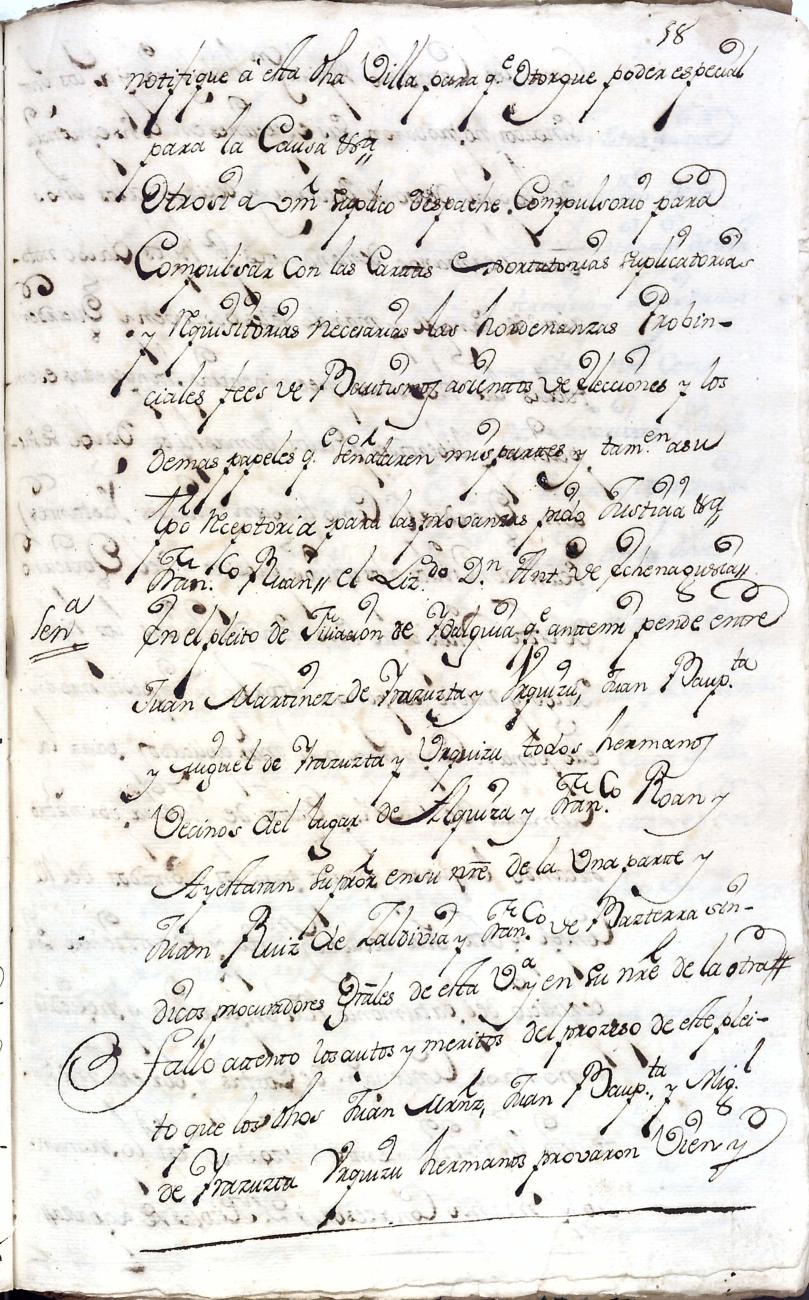 58
notifique à esta dha Villa para q.e Otorgue poder especial
para la Causa &a
Otrosi a vm suplico despache Compulsorio para
Compulsar Con las Cartas Exortatorias suplicatorias
y Requisitorias necesarias las hordenanzas Probin-
ciales fees de Bautismos asientos de elecciones y los
demas papeles q.e señalaren mis partes y tam.en a su
tpo Receptoria para las provanzas pido Justicia &a
Fran.co Ruan el Liz.do D.n Ant.o de Echenagusia
Sen.a
En el pleito de Filiacion de Ydalguia q.e ante mi pende entre
Juan Martinez de Yrazuzta y Urquizu, Juan Baup.ta
y Miguel de Yrazuzta y Urquizu todos hermanos
Vecinos del lugar de Alquiza y Fran.co Roan y
Ayestaran su pror en su nre de la Una parte y
Juan Ruiz de Zaldivia y Fran.co de Bazterra sin-
dicos procuradores Grales de esta V.a y en su nre de la otra
Fallo attento los autos y meritos del prozeso de este plei-
to que los dhos Juan Mrnz, Juan Baup.ta y Mig.l
de Yrazuzta Urquizu hermanos provaron Vien y